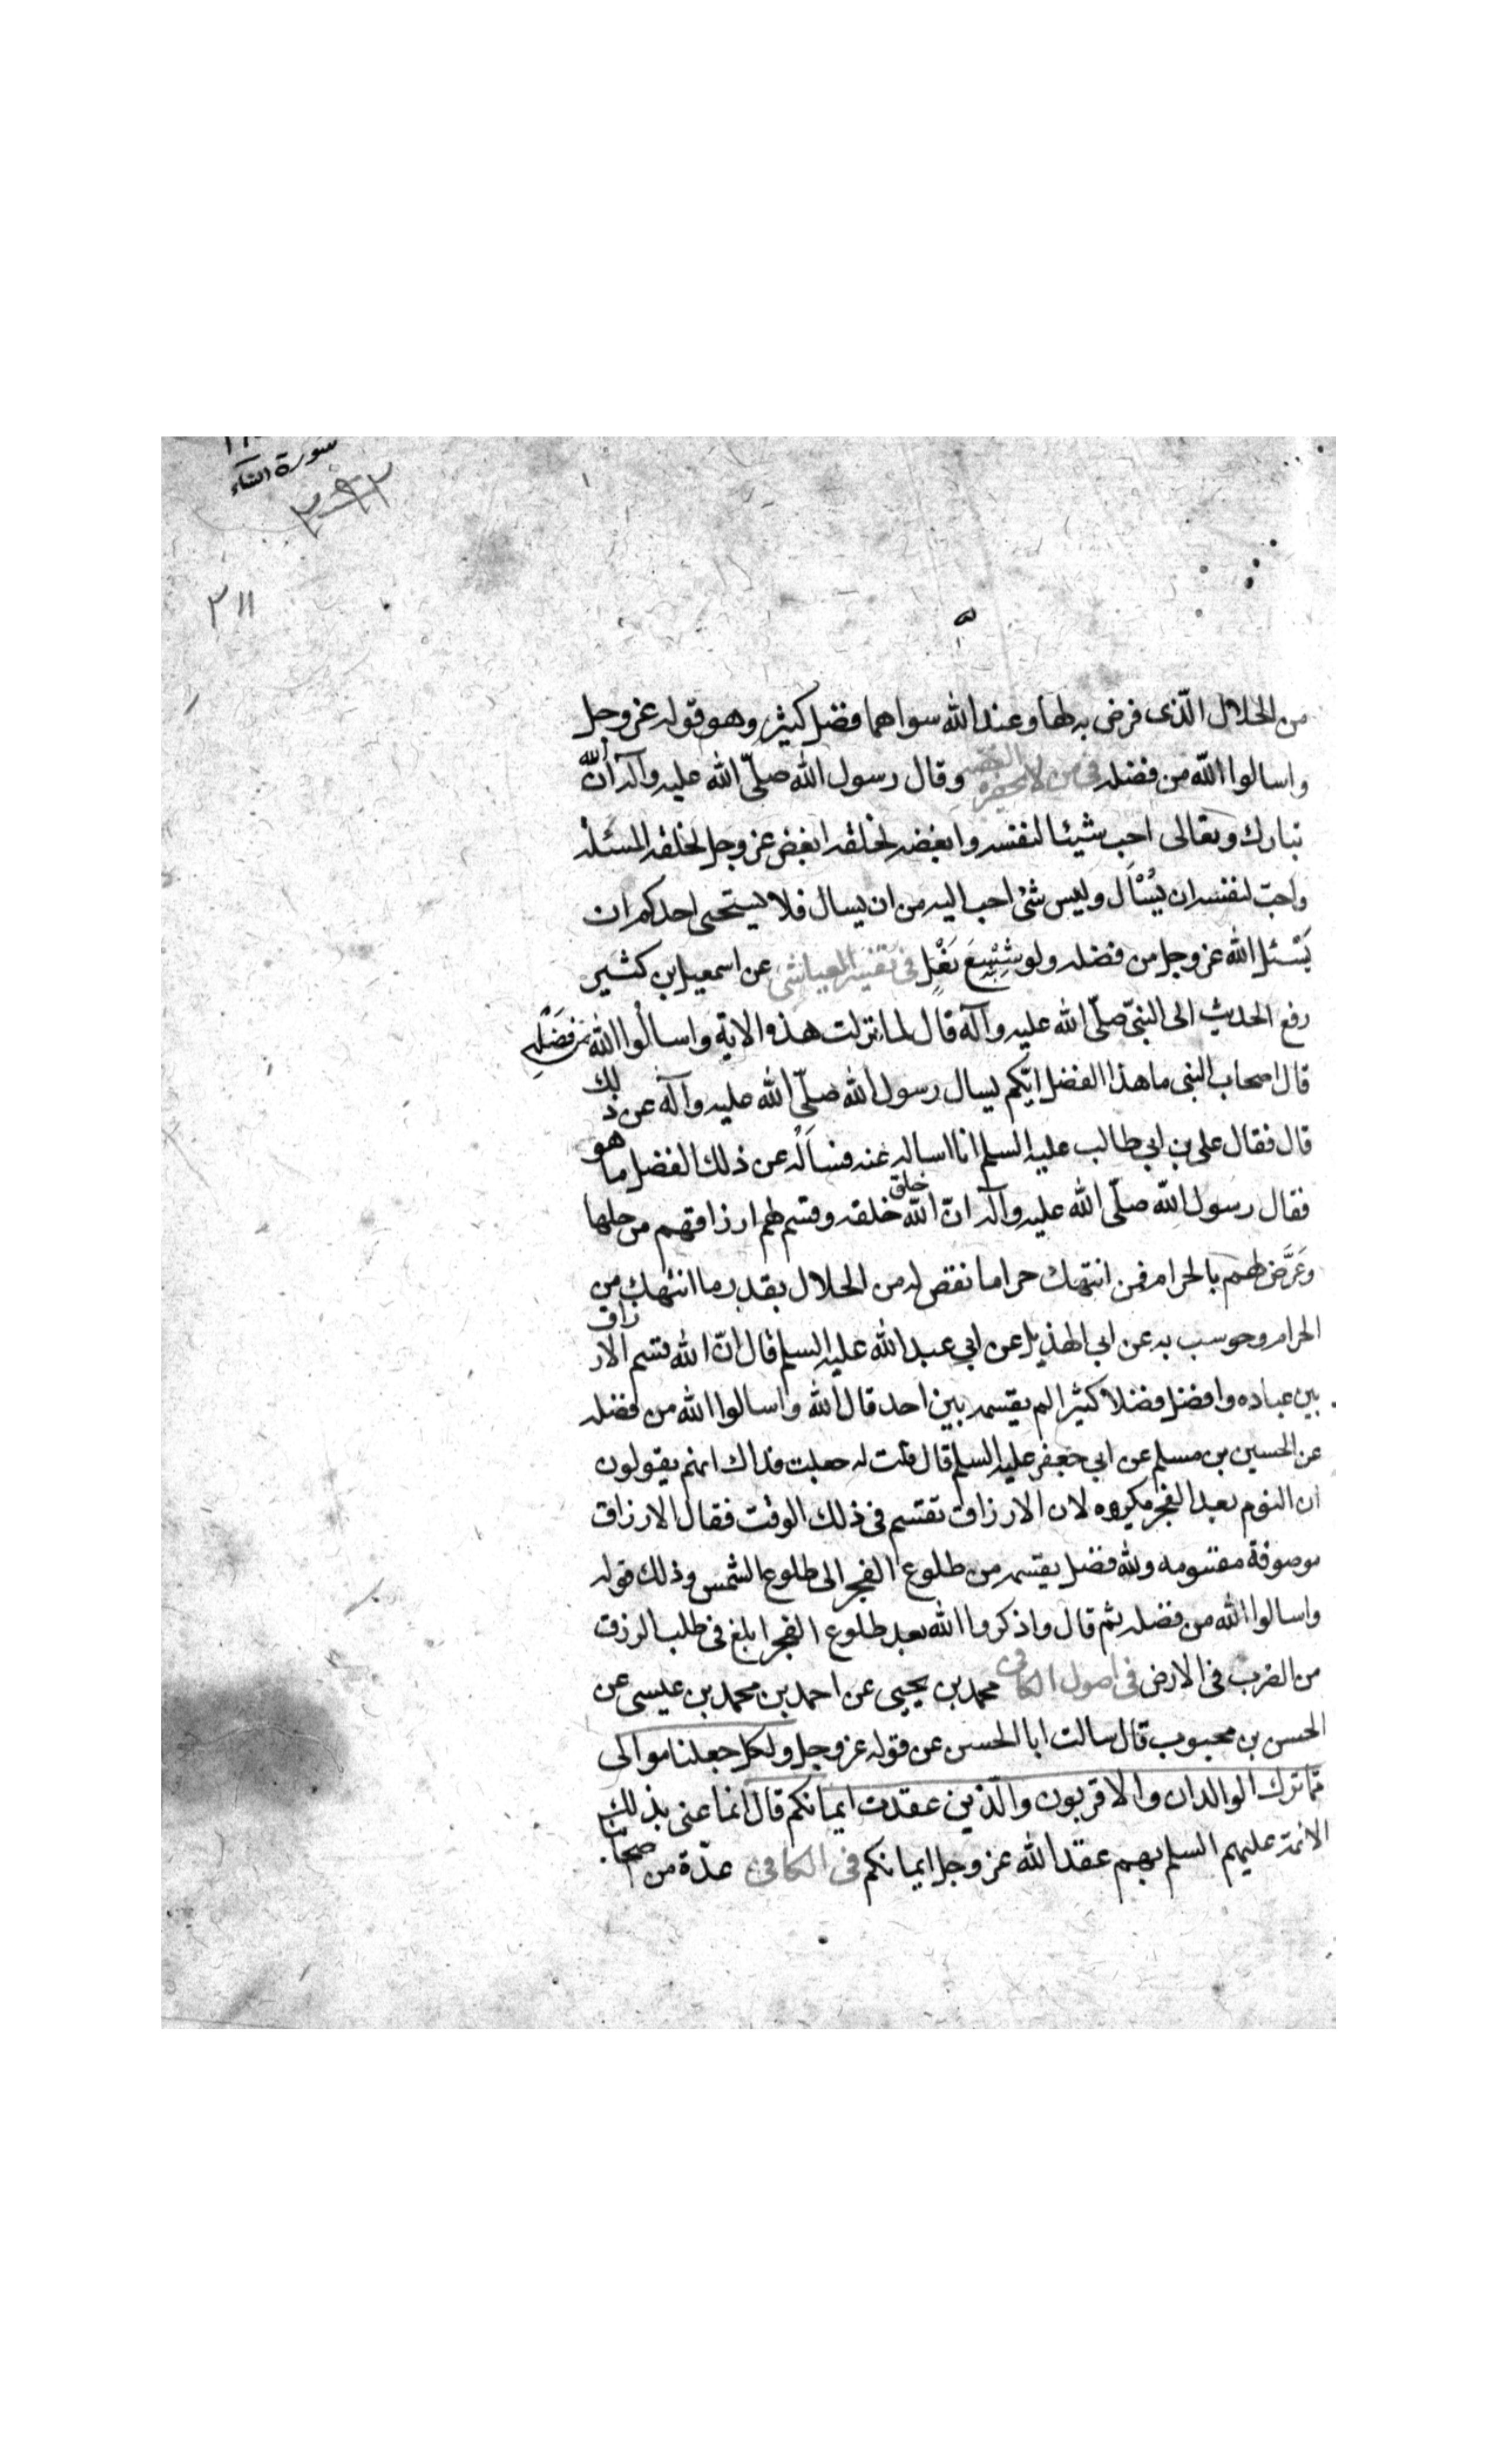 سورة النساء
٢١١
من الحلال الّذى فرض به لها وعند الله سواهما فضل كثير وهو قوله عز وجل
واسالوا الله من فضله فى من لا يحضره الفقيه وقال رسول الله صلّى الله عليه وآله انّ الله
تبارك وتعالى احب شيئا لنفسه وابغضه لخلقه ابغض عز وجل لخلقه المسئلة
واحبّ لنفسه ان يُسْاَل وليس شئ احب اليه من ان يسال فلا يستحيى احدكم ان
يَسْئل الله عز وجل من فضله ولو شِسْعَ نَعْلٍ فى تفسير العياشى عن اسمعيل بن كثير
رفع الحديث الى النبىّ صلّى الله عليه وآله قال لما نزلت هذه الاية واسالُوا الله مِن فَضْلِهِ
قال اصحاب النبى ما هذا الفضل ايّكم يسال رسول الله صلّى الله عليه وآله عن ذلك
قال فقال على بن ابى طالب عليه السلم انا اساله عنه فسَاَلَه عن ذلك الفضل ما هو
فقال رسول الله صلّى الله عليه وآله انّ الله خلق خلقه وقسم لهم ارزاقهم من حلها
وعَرَّض لهم بالحرام فمن انتهك حراما نقص له من الحلال بقدر ما انتهك من
الحرام وحوسب به عن ابى الهذيل عن ابى عبد الله عليه السلم قال انّ الله قسم الارزاق
بين عباده وافضل فضلا كثيرا لم يقسمه بين احد قال الله واسالوا الله من فضله
عن الحسين بن مسلم عن ابى جعفر عليه السلم قال قلت له جعلت فداك انهم يقولون
ان النوم بعد الفجر مكروه لان الارزاق تقسم فى ذلك الوقت فقال الارزاق
موصوفة مقسومه ولله فضل يقسمه من طلوع الفجر الى طلوع الشمس وذلك قوله
واسالوا الله من فضله ثم قال واذكروا الله بعد طلوع الفجر ابلغ فى طلب الرزق
من الضرب فى الارض فى اصول الكافى محمد بن يحيى عن احمد بن محمد بن عيسى عن
الحسن بن محبوب قال سالت ابا الحسن عن قوله عز وجل ولكل جعلنا موالى
ممّا ترك الوالدان والاقربون والّذين عقدت ايمانكم قال انما عنى بذلك
الائمة عليهم السلم بهم عقد الله عز وجل ايمانكم فى الكافى عدّة من اصحابنا